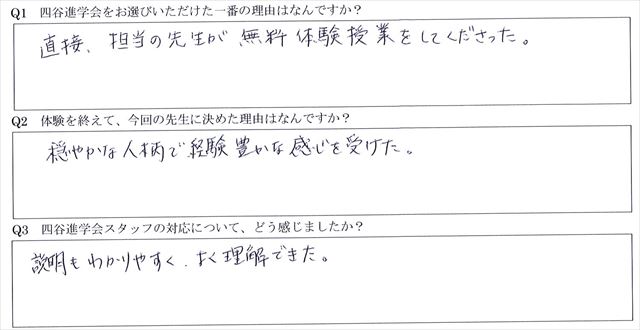 Q1 四谷進学会をお選びいただけた一番の理由はなんですか？
直接、担当の先生が無料体験授業をしてくださった。
Q2 体験を終えて、今回の先生に決めた理由はなんですか？
穏やかな人柄で経験豊かな感じを受けた。
Q3 四谷進学会スタッフの対応について、どう感じましたか？
説明もわかりやすく、よく理解できた。